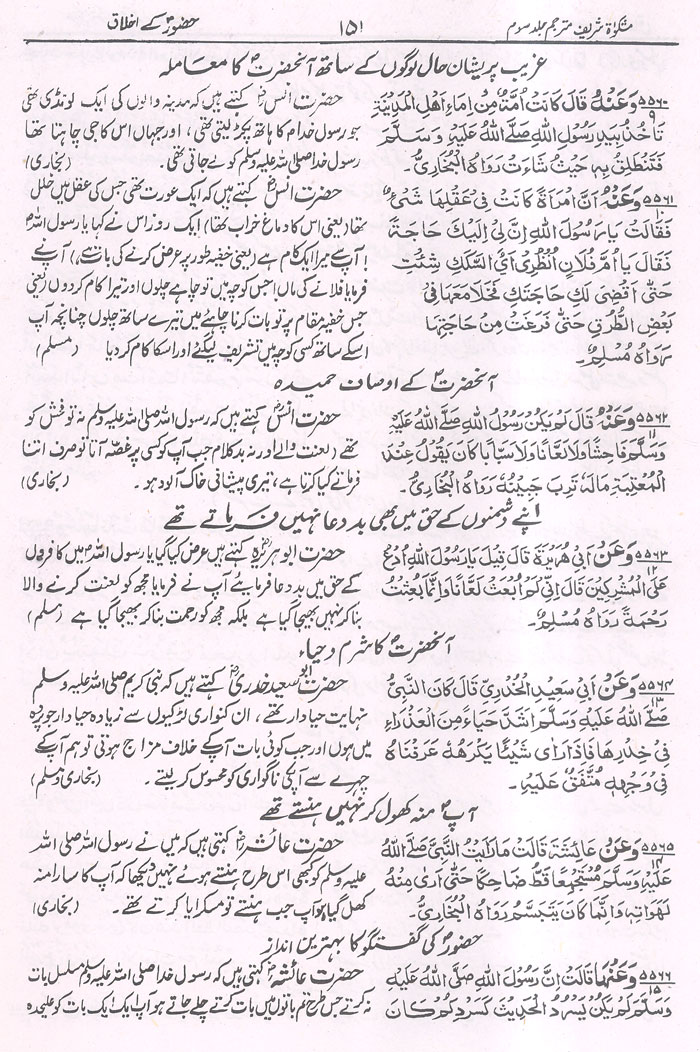 مشکوٰۃ شریف مترجم جلد سوم
۱۵۱
حضورؐ کے اخلاق
غریب پریشان حال لوگوں کے ساتھ آنحضرتؐ کا معاملہ
۵۵۶۰ وَعَنْهُ قَالَ كَانَتْ اَمَةٌ مِّنْ اِمَاءِ اَهْلِ الْمَدِيْنَةِ
۹
تَاْخُذُ بِيَدِ رَسُوْلِ اللهِ صَلَّى اللهُ عَلَيْهِ وَسَلَّمَ
فَتَنْطَلِقُ بِهٖ حَيْثُ شَاءَتْ رَوَاهُ الْبُخَارِيُّ۔
حضرت انسؓ کہتے ہیں کہ مدینہ والوں کی ایک لونڈی تھی
جو رسول خدا کا ہاتھ پکڑ لیتی تھی، اور جہاں اس کا جی چاہتا تھا
رسول خدا صلی اللہ علیہ وسلم کو لے جاتی تھی۔ (بخاری)
۵۵۶۱ وَعَنْهُ اَنَّ امْرَاَةً كَانَتْ فِيْ عَقْلِهَا شَيْءٌ
۱۰
فَقَالَتْ يَا رَسُوْلَ اللهِ اِنَّ لِيْ اِلَيْكَ حَاجَةً
فَقَالَ يَا اُمَّ فُلَانٍ اُنْظُرِيْ اَيَّ السِّكَكِ شِئْتِ
حَتّٰى اَقْضِيَ لَكِ حَاجَتَكِ فَخَلَا مَعَهَا فِيْ
بَعْضِ الطُّرُقِ حَتّٰى فَرَغَتْ مِنْ حَاجَتِهَا
رَوَاهُ مُسْلِمٌ۔
حضرت انسؓ کہتے ہیں کہ ایک عورت تھی جس کی عقل میں خلل
تھا (یعنی اس کا دماغ خراب تھا) ایک روز اس نے کہا یا رسول اللہ
آپ سے میرا ایک کام ہے (یعنی خفیہ طور پر عرض کرنے کی بات ہے) آپ نے
فرمایا فلانے کی ماں! جس کوچہ میں تو چاہے چلوں اور تیرا کام کردوں یعنی
جس خفیہ مقام پر تو بات کرنا چاہے میں تیرے ساتھ چلوں چنانچہ آپ
اسکے ساتھ کسی کوچہ میں تشریف لیگئے اور اسکا کام کردیا (مسلم)
آنحضرتؐ کے اوصاف حمیدہ
۵۵۶۲ وَعَنْهُ قَالَ لَمْ يَكُنْ رَسُوْلُ اللهِ صَلَّى اللهُ عَلَيْهِ
۱۱
وَسَلَّمَ فَاحِشًا وَلَا لَعَّانًا وَلَا سَبَّابًا كَانَ يَقُوْلُ عِنْدَ
الْمَعْتِبَةِ مَالَهٗ تَرِبَ جَبِيْنُهٗ رَوَاهُ الْبُخَارِيُّ۔
حضرت انسؓ کہتے ہیں کہ رسول اللہ صلی اللہ علیہ وسلم نہ تو فحش گو
تھے، لعنت والے اور نہ بد کلام جب آپ کو کسی پر غصہ آتا تو صرف اتنا
فرماتے کیا کرتا ہے، تیری پیشانی خاک آلود ہو۔ (بخاری)
اپنے دشمنوں کے حق میں بھی بد دعا نہیں فرماتے تھے
۵۵۶۳ وَعَنْ اَبِيْ هُرَيْرَةَ قَالَ قِيْلَ يَا رَسُوْلَ اللهِ اُدْعُ
۱۲
عَلَى الْمُشْرِكِيْنَ قَالَ اِنِّيْ لَمْ اُبْعَثْ لَعَّانًا وَّاِنَّمَا بُعِثْتُ
رَحْمَةً رَوَاهُ مُسْلِمٌ۔
حضرت ابوہریرہؓ کہتے ہیں عرض کیا گیا یا رسول اللہ! مشرکین کافروں
کے حق میں بد دعا فرمایئے آپ نے فرمایا مجھ کو لعنت کرنے والا
بنا کر نہیں بھیجا گیا ہے بلکہ مجھ کو رحمت بنا کر بھیجا گیا ہے (مسلم)
آنحضرتؐ کا شرم و حیاء
۵۵۶۴ وَعَنْ اَبِيْ سَعِيْدِ الْخُدْرِيِّ قَالَ كَانَ النَّبِيُّ
۱۳
صَلَّى اللهُ عَلَيْهِ وَسَلَّمَ اَشَدَّ حَيَاءً مِّنَ الْعَذْرَاءِ
فِيْ خِدْرِهَا فَاِذَا رَاٰى شَيْئًا يَكْرَهُهٗ عَرَفْنَاهُ
فِيْ وَجْهِهٖ مُتَّفَقٌ عَلَيْهِ۔
حضرت ابو سعید خدریؓ کہتے ہیں کہ نبی کریم صلی اللہ علیہ وسلم
نہایت حیا دار تھے، ان کنواری لڑکیوں سے زیادہ حیا دار جو پردہ
میں ہوں اور جب کوئی بات آپکے خلاف مزاج ہوتی تو ہم آپکے
چہرے سے آپکی ناگواری کو محسوس کر لیتے۔ (بخاری و مسلم)
آپؐ منہ کھول کر نہیں ہنستے تھے
۵۵۶۵ وَعَنْ عَائِشَةَ قَالَتْ مَا رَاَيْتُ النَّبِيَّ صَلَّى اللهُ
۱۴
عَلَيْهِ وَسَلَّمَ مُسْتَجْمِعًا قَطُّ ضَاحِكًا حَتّٰى اَرٰى مِنْهُ
لَهَوَاتِهٖ وَاِنَّمَا كَانَ يَتَبَسَّمُ رَوَاهُ الْبُخَارِيُّ۔
حضرت عائشہؓ کہتی ہیں کہ میں نے رسول اللہ صلی اللہ
علیہ وسلم کو کبھی اس طرح ہنستے ہوئے نہیں دیکھا کہ آپ کا سارا منہ
کھل گیا ہو آپ جب ہنستے تو مسکرایا کرتے تھے۔ (بخاری)
حضورؐ کی گفتگو کا بہترین انداز
۵۵۶۶ وَعَنْهَا قَالَتْ اِنَّ رَسُوْلَ اللهِ صَلَّى اللهُ عَلَيْهِ
۱۵
وَسَلَّمَ لَمْ يَكُنْ يَسْرُدُ الْحَدِيْثَ كَسَرْدِكُمْ كَانَ
حضرت عائشہؓ کہتی ہیں کہ رسول خدا صلی اللہ علیہ وسلم مسلسل بات
نہ کرتے جس طرح تم باتوں میں بات کرتے چلے جاتے ہو آپ ایک ایک بات کو علیحدہ